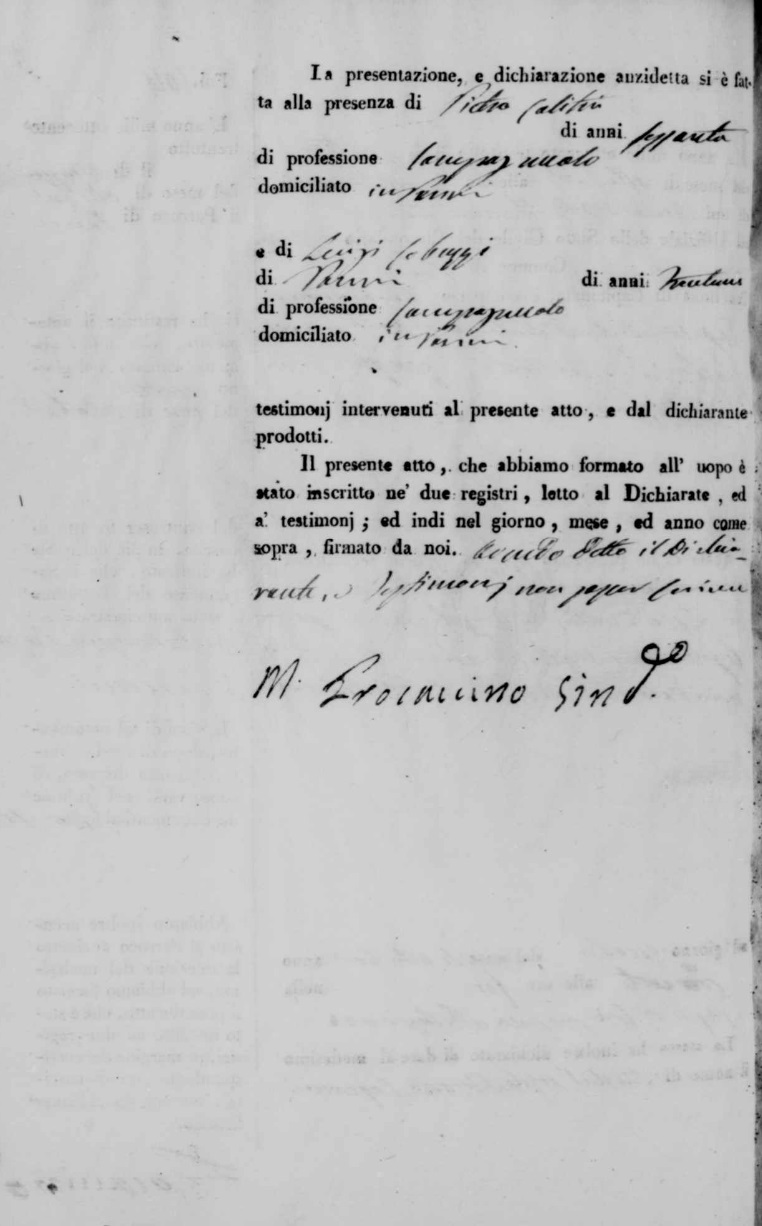 La presentazione, e dichiarazione anzidetta si è fat-
ta alla presenza di Pietro
di anni sessanta
di professione Campagnuolo
domiciliato in Panni
e di Luigi
di Panni di anni
di professione Campagnuolo
domiciliato in Panni
testimonj intervenuti al presente atto, e dal dichiarante
prodotti.
Il presente atto, che abbiamo formato all' uopo è
stato inscritto ne' due registri, letto al Dichiarate, ed
a' testimonj; ed indi nel giorno, mese, ed anno come
sopra, firmato da noi. Avendo detto il Dichia-
rante, e Testimonj non saper scrivere
M. Procaccino Sind.º